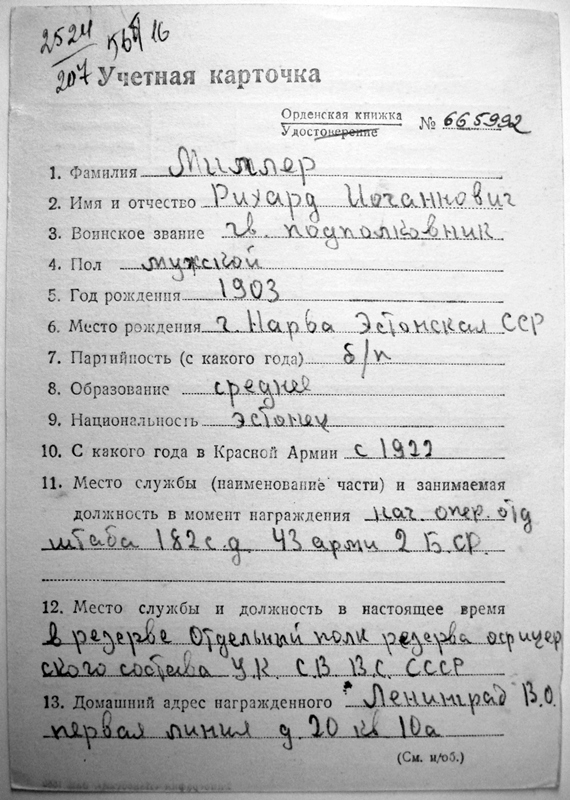 2524
207
16
Учетная карточка
Орденская книжка
Удостоверение № 665992
1. Фамилия Миллер
2. Имя и отчество Рихард Иоганнович
3. Воинское звание гв. подполковник
4. Пол мужской
5. Год рождения 1903
6. Место рождения г. Нарва Эстонская ССР
7. Партийность (с какого года) б/п
8. Образование среднее
9. Национальность эстонец
10. С какого года в Красной Армии с 1922
11. Место службы (наименование части) и занимаемая
должность в момент награждения нач. опер. отд
штаба 182 с.д. 43 арми 2 Б. СР.
12. Место службы и должность в настоящее время
в резерве Отдельный полк резерва офицер
ского состава У.К. С.В. В.С. СССР
13. Домашний адрес награжденного Ленинград В.О.
первая линия д. 20 кв 10а
(См. н/об.)